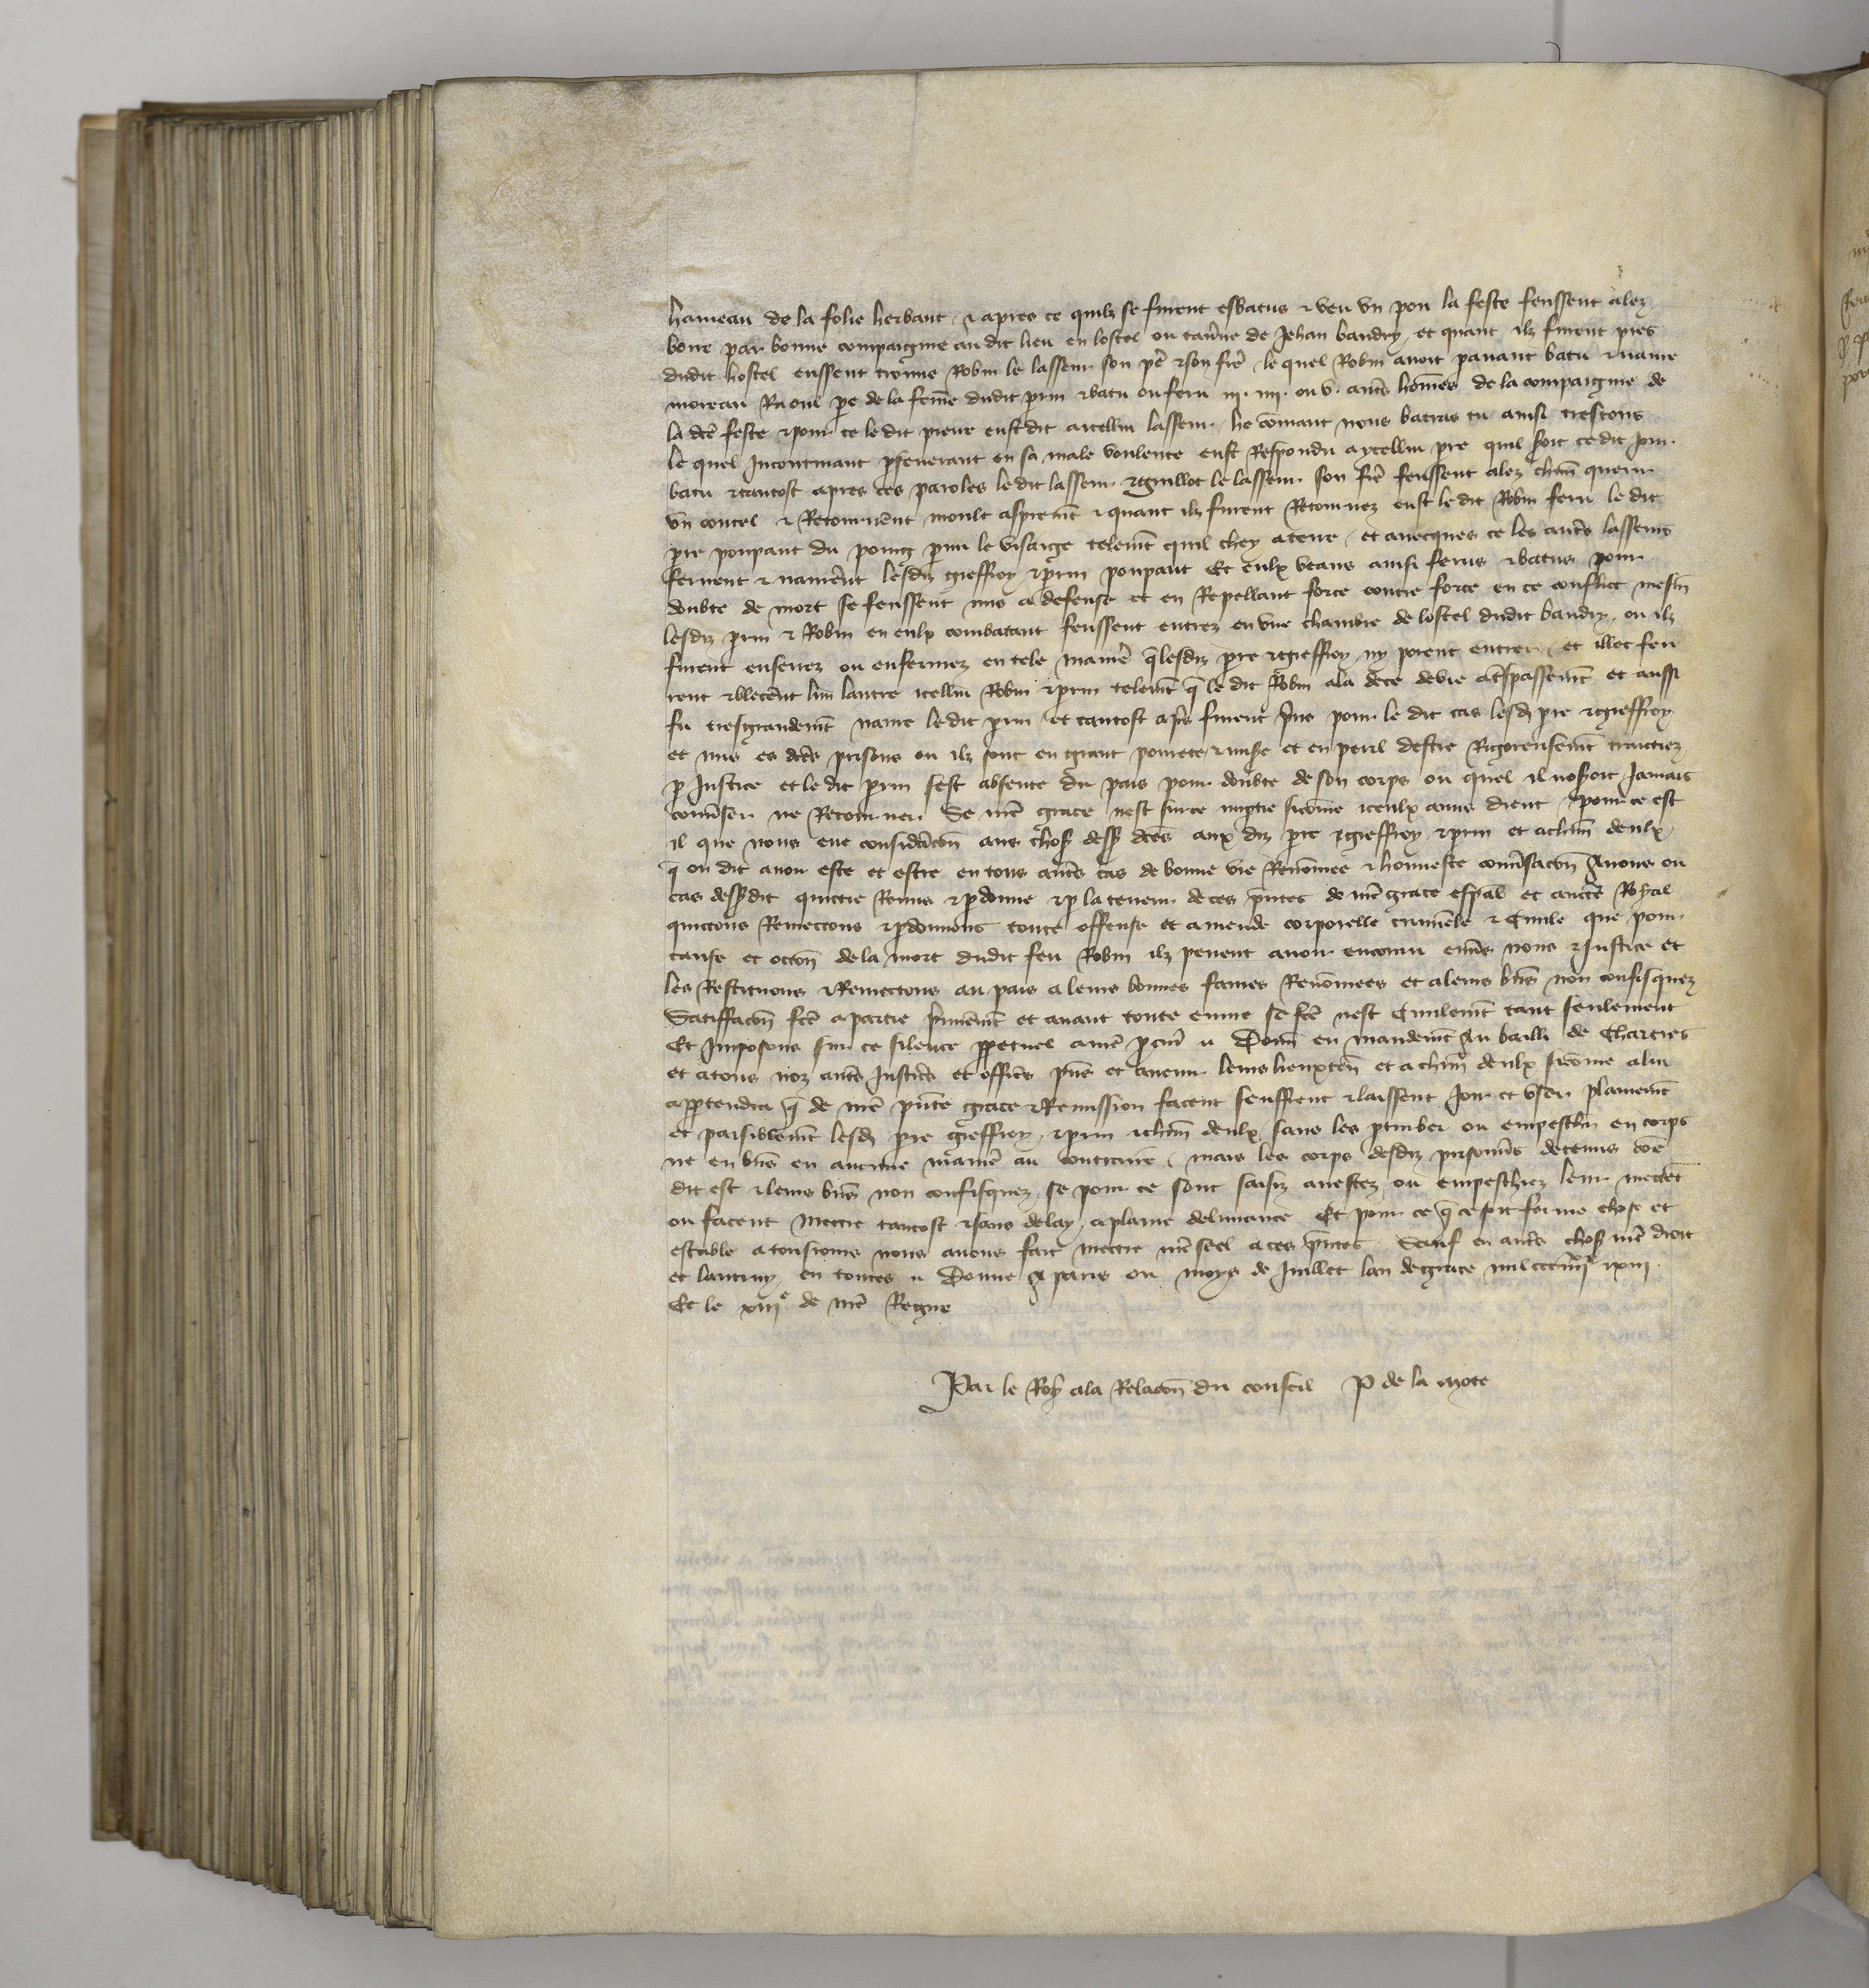 hameau de la folie herbaut / & apres ce quilz se furent esbatus & veu un pou la feste feussent alez
boire par bonne compaignie au dit lieu en lostel ou taverne de Jehan baudry / et quant ilz furent pres
dudit hostel eussent trouve Robin le lasseur son pere & son frere / le quel Robin avoit pavant batu & navre
moreau Raoul pere de la feme dudit prin & batu ou feru iii. iiii. ou v. autres homes de la compaignie de
la dicte feste & pour ce le dit pierre eust dit a icellui lasseur / he comant nous batras tu ainsi trestous
le quel Incontinant perseverant en sa male voulente eust Respondu a ycellui pierre quil seroit ce dit jour
batu & tantost apres ces paroles le dit lasseur & guillot le lasseur son frere feussent alez chascun querir
un coutel & Retournerent moult asprement & quant ilz furent Retournez eust le dit Robin feru le dit
pierre poupaut du poing parmi le visaige telement quil chey a terre / et avecques ce les autres lasseurs
ferirent & navrerent lesdiz gieffroy & prin poupaut Et eulx veans ainsi ferus & batus pour
doubte de mort se feussent mis a defense et en Repellant force contre force en ce conflict mesmes
lesdiz prin & Robin en eulx combatant feussent entrez en une chambre de lostel dudit baudry / ou ilz
furent enserrez ou enfermez en tele maniere que lesdiz pierre & gieffroy ny porent entrer / et illec feri
rent & blecerent lun lautre icellui Robin & prin telement que le dit Robin ala de ce de vie a trespassement et aussi
fu tresgrandement navre le dit prin / et tantost apres furent prins pour le dit cas lesdiz pierre & gieffroy
et mis es dictes prisons ou ilz sont en grant povrete & misere et en peril destre Rigoreusement traictiez
par Justice et le dit prin sest absente du pais pour doubte de son corps ou quel il noseroit Jamais
converser ne Retourner Se nostre grace nest sur ce impartie sicomme iceulx amis dient / pour ce est
il que nous eue consideracion aus choses dessus dictes aux diz pierre & gieffroy & prin et a chascun deulx /
que on dit avoir este et estre en tous autres cas de bonne vie Renommee & honneste conversacion Avons ou
cas dessus dit quictie Remis & pardonne & par la teneur de ces presentes de nostre grace especial et auctorite Royal
quictons Remectons & pardonnons toute offense et amende corporelle criminele & Civile que pour
cause et occasion de la mort dudit feu Robin ilz pevent avoir encouru envers nous & Justice et
les Restituons & Remectons au pais a leurs bonnes fames Renommees et a leurs biens non confisquez
Satiffacion faicte a partie premierement et avant toute euvre se faicte nest Civilement tant seulement
Et Imposons sur ce silence perpetuel a nostre procureur &c Donnons en mandement Au bailli de Chartres
et a tous noz autres Justiciers et officiers presens et avenir leurs lieuxtenans et a chascun deulx sicomme a lui
appartendra que de nostre presente grace & Remission facent seuffrent & laissent Joir et user plainement
et paisiblement lesdiz pierre gieffroy & prin & chascun deulx sans les pertuber ou empeschier en corps
ne en biens en aucune maniere au contraire / mais les corps desdiz prisonniers detenus comme
dit est & leurs biens non confisquez se pour ce sont saisiz arrestez ou empeschiez leur mectent
ou facent mectre tantost & sans delay a plaine delivrance Et pour ce que ce soit ferme chose et
estable a tousiours nous avons fait mectre nostre seel a ces presentes Sauf en autres choses nostre droit
et lautruy en toutes &c Donne A paris ou moys de Juillet lan de grace mil ccc iiiixx & xiii
Et le xiiie de nostre Regne
Par le Roy a la Relacion du conseil P de la mote